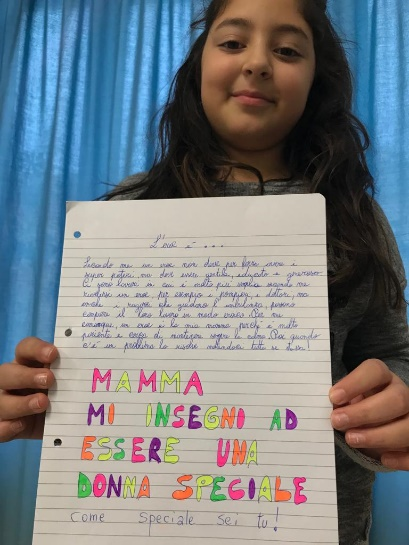 L'eroe è ...
Secondo me un eroe non deve per forza avere i
super poteri, ma deve essere gentile, educato e generoso.
Ci sono lavori in cui è molto più
eroe per esempio i pompieri, i dottori, ma
anche i ragazzi che guidano l'ambulanza possono
compiere il loro lavoro in modo eroico. Per me
comunque un eroe è la mia mamma perché è molto
paziente e cerca di mantenere sempre la calma. Poi quando
c'è un problema lo risolve
MAMMA
MI INSEGNI AD
ESSERE UNA
DONNA SPECIALE
come speciale sei tu!